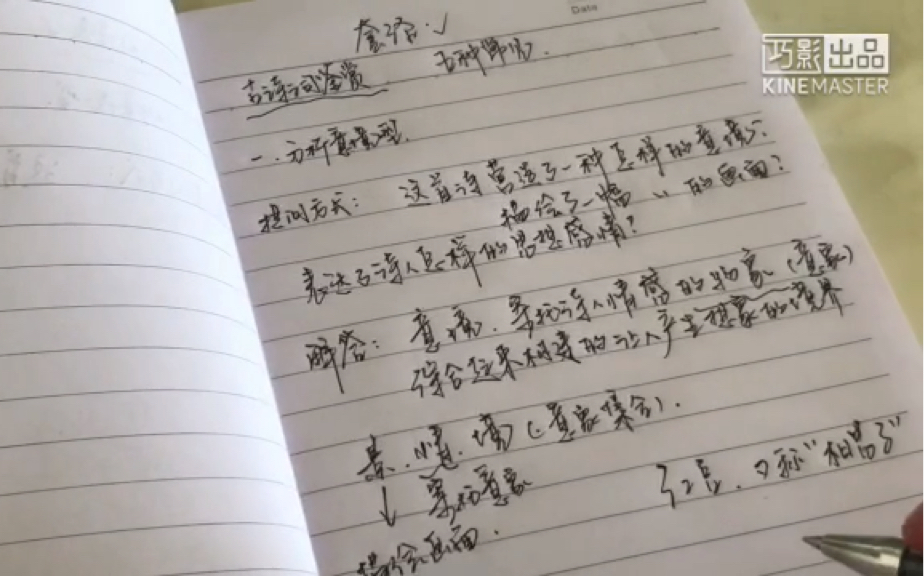 Date
巧影出品
KINEMASTER
套路:√
古诗词鉴赏 五种
一.分析意境型.
提问方式: 这首诗营造了一种怎样的意境?
描绘了一幅 〃 的画面?
表达了诗人怎样的思想感情?
解答: 意境, 寄托诗人情感的物象(意象)
综合起来构建的让人产生想象的境界
景、情、境(意象集合).
↓ 寄托意象
描绘画面.